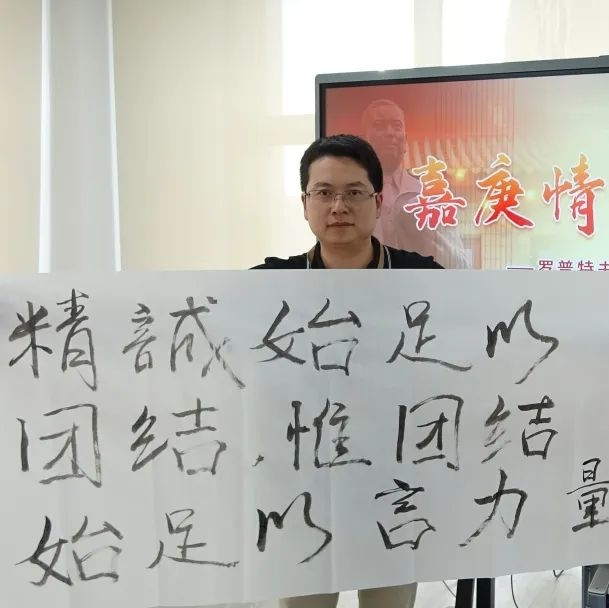 嘉庚情
——罗普特
精誠始足以
团结,惟团结
始足以言力量